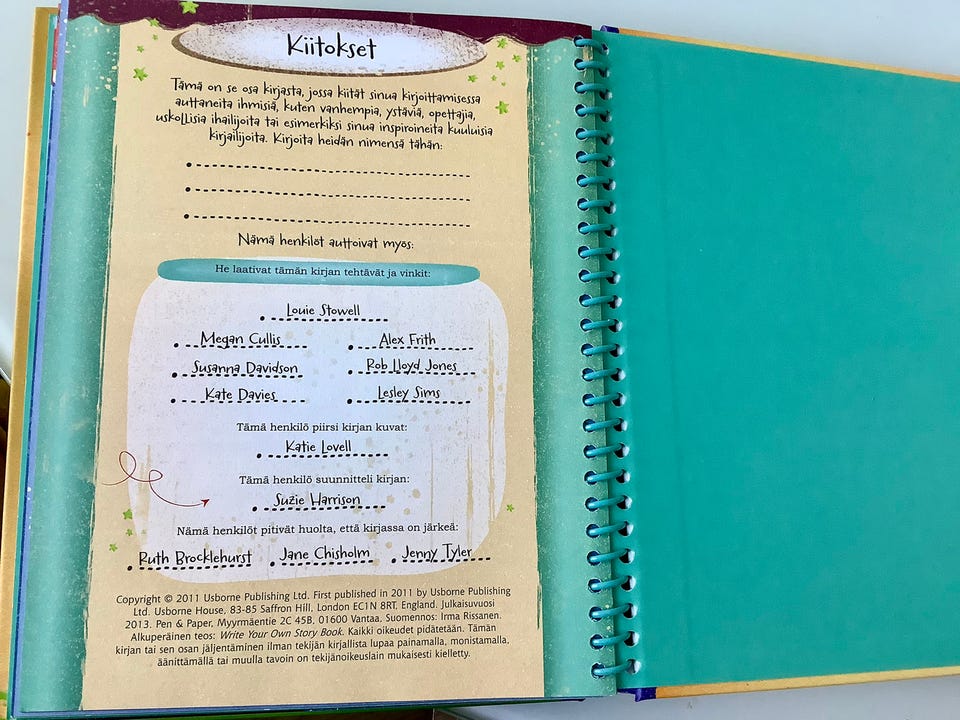 Kiitokset
Tämä on se osa kirjasta, jossa kiität sinua kirjoittamisessa
auttaneita ihmisiä, kuten vanhempia, ystäviä, opettajia,
uskollisia ihailijoita tai esimerkiksi sinua inspiroineita kuuluisia
kirjailijoita. Kirjoita heidän nimensä tähän:
Nämä henkilöt auttoivat myös:
He laativat tämän kirjan tehtävät ja vinkit:
Louie Stowell
Megan Cullis Alex Frith
Susanna Davidson Rob Lloyd Jones
Kate Davies Lesley Sims
Tämä henkilö piirsi kirjan kuvat:
Katie Lovell
Tämä henkilö suunnitteli kirjan:
Suzie Harrison
Nämä henkilöt pitivät huolta, että kirjassa on järkeä:
Ruth Brocklehurst Jane Chisholm Jenny Tyler
Copyright © 2011 Usborne Publishing Ltd. First published in 2011 by Usborne Publishing
Ltd. Usborne House, 83-85 Saffron Hill, London EC1N 8RT, England. Julkaisuvuosi
2013. Pen & Paper, Myyrmäentie 2C 45B, 01600 Vantaa, Suomennos: Irma Rissanen.
Alkuperäinen teos: Write Your Own Story Book. Kaikki oikeudet pidätetään. Tämän
kirjan tai sen osan jäljentäminen ilman tekijän kirjallista lupaa painamalla, monistamalla,
äänittämällä tai muulla tavoin on tekijänoikeuslain mukaisesti kielletty.